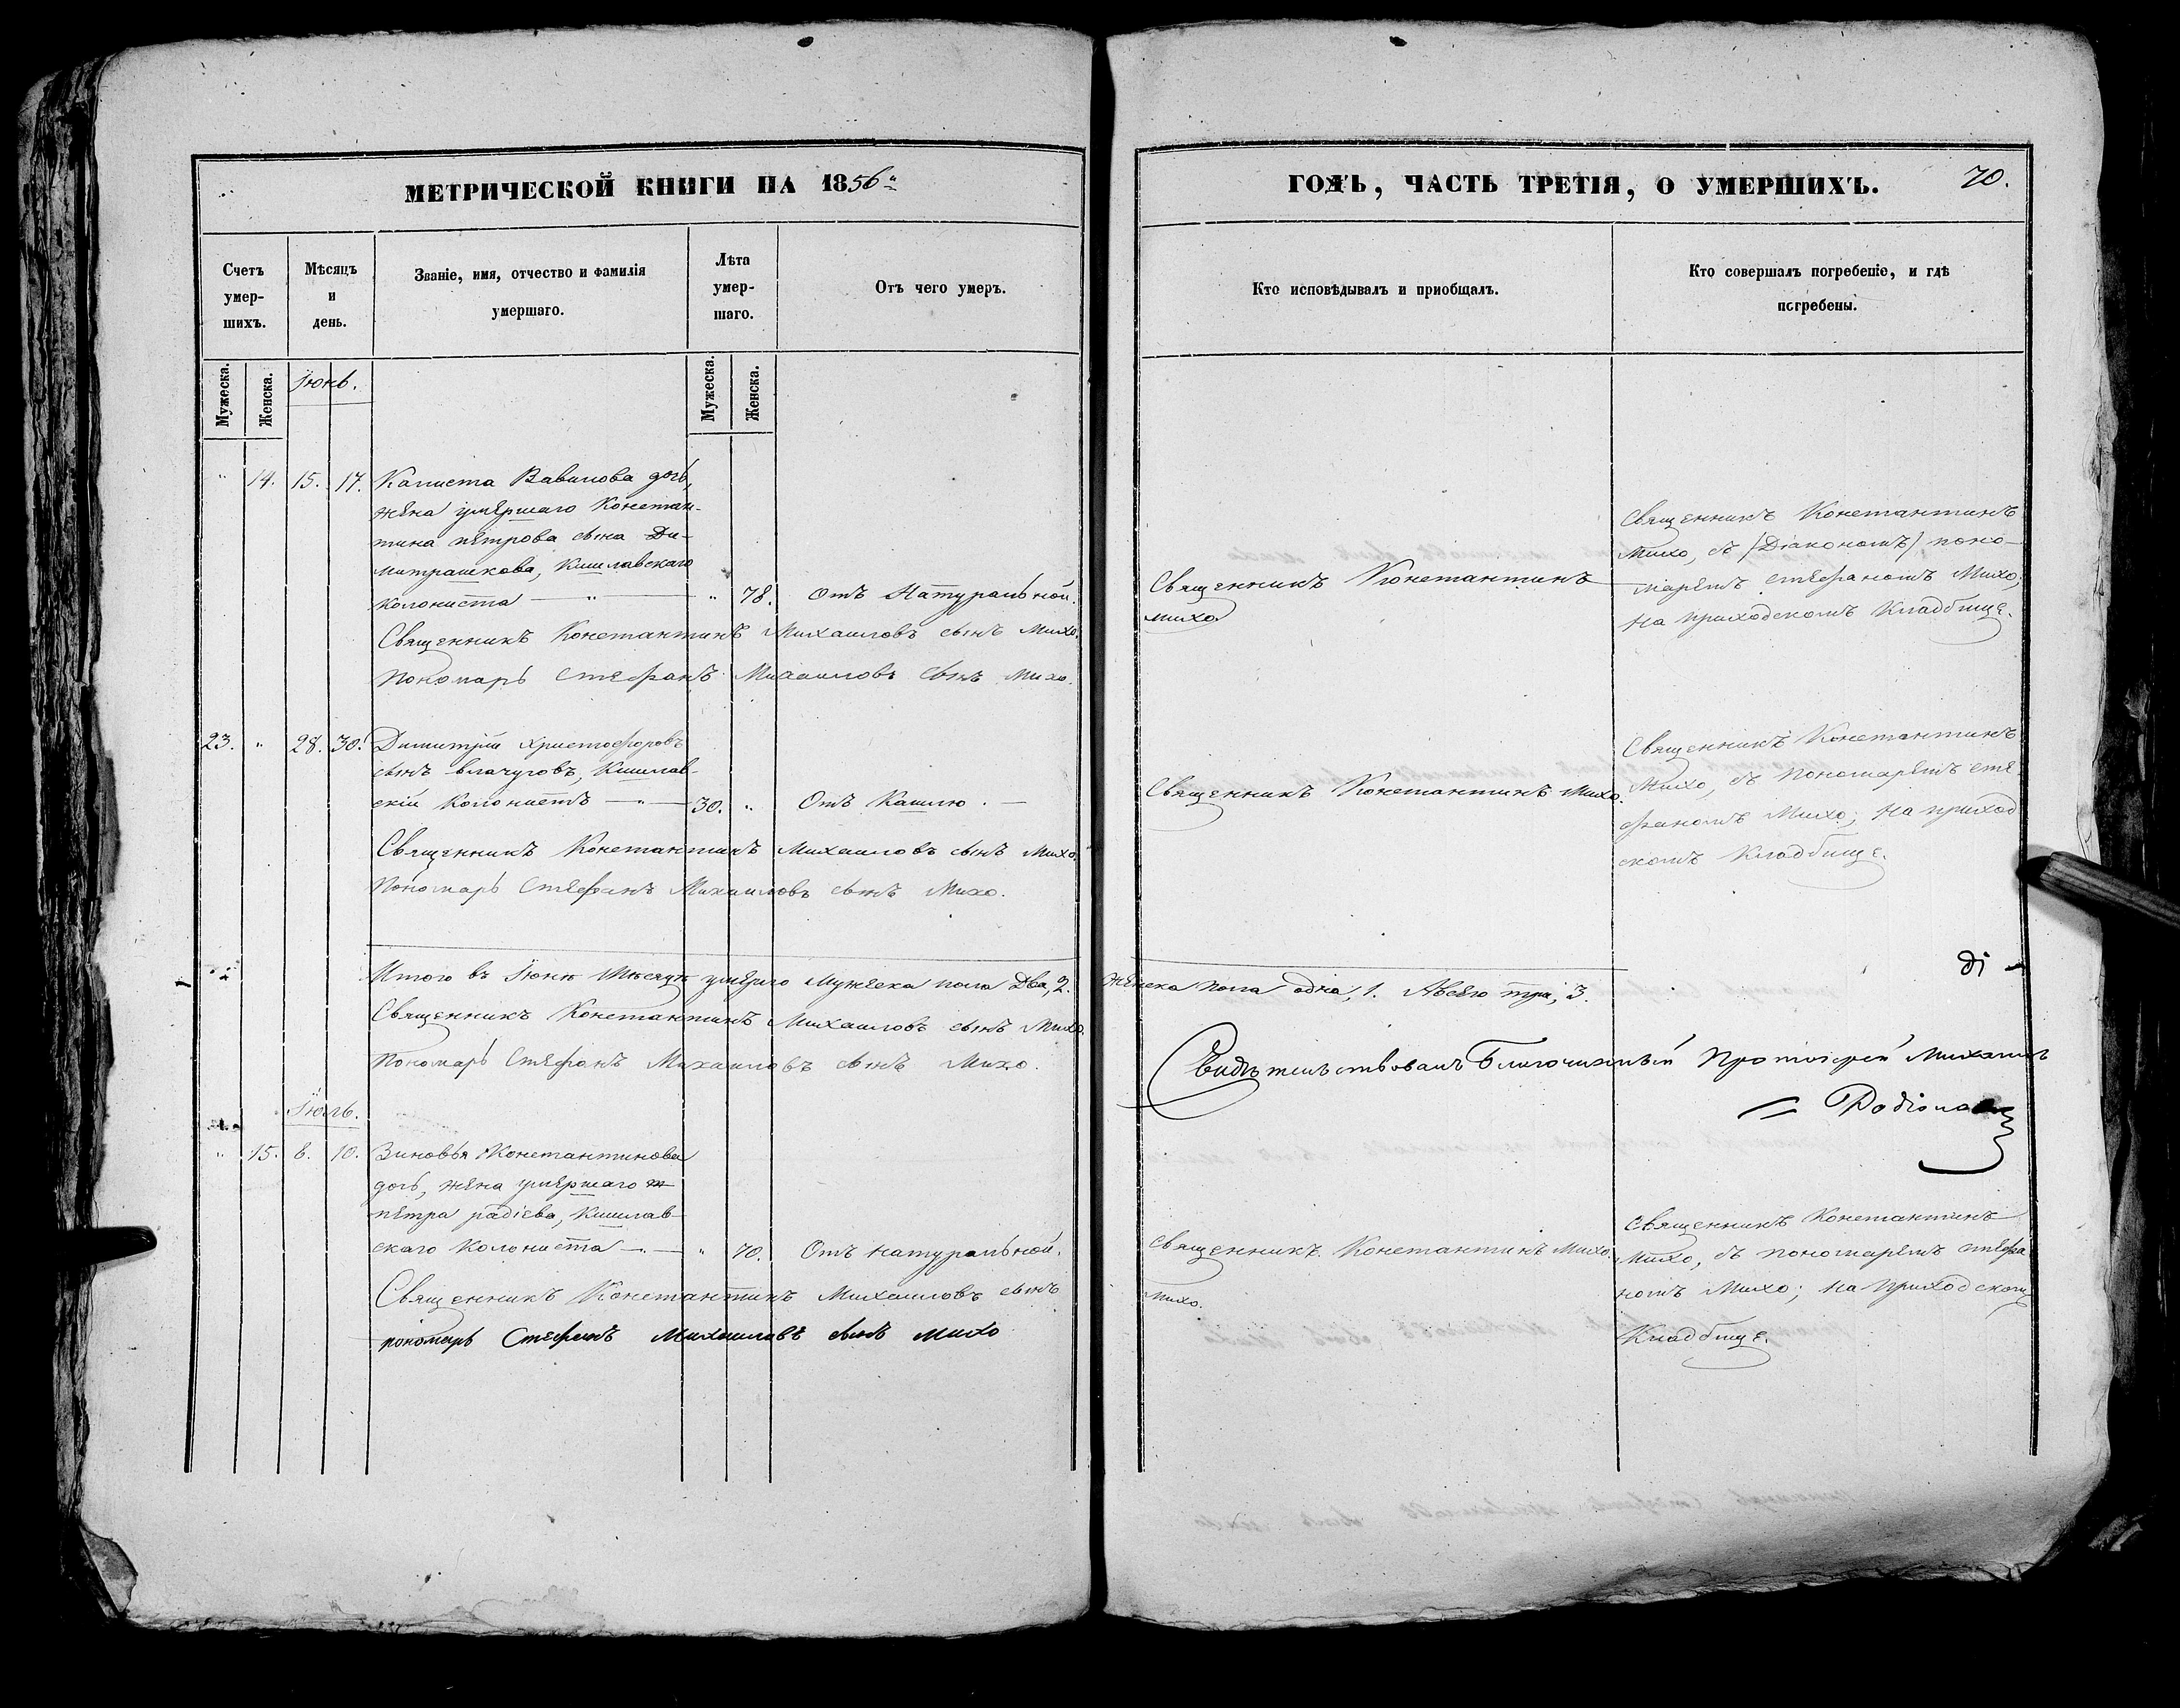 МЕТРИЧЕСКОЙ КНИГИ НА 1856й
Счетъ умер-шихъ.
Мѣсяцъ и день.
Званіе, имя, отчество и фамилія умершаго.
Лѣта умер-шаго.
Отъ чего умеръ.
Мужеска.
Женска.
Іюнь.
Мужеска.
Женска.
" 14. 15. 17. Калиста Вавилова дочь,
жена умершаго Констан-
тина петрова сына Ди-
митрашкова, Кишлавскаго
колониста — " — " 78. Отъ Натуральной.
Священникъ Константинъ Михаиловъ сынъ Михо.
Пономарь Стефанъ Михаиловъ сынъ Михо.
23. " 28. 30. Димитрій Христофоровъ
сынъ влачуговъ, Кишлав-
скій Колонистъ — " — 30. " Отъ Кашлю. —
Священникъ Константинъ Михаиловъ сынъ Михо.
Пономарь Стефанъ Михаиловъ сынъ Михо.
Итого въ Іюнѣ Мѣсяцѣ умерло мужеска пола Два, 2.
Священникъ Константинъ Михаиловъ сынъ Михо.
Пономарь Стефанъ Михаиловъ сынъ Михо.
Іюль.
" 15. 8. 10. Зиновья Константинова
дочь, жена умершаго
петра радіева, Кишлав-
скаго Колониста — " — " 70. Отъ натуральной.
Священникъ Константинъ Михаиловъ сынъ
пономарь Стефанъ Михаиловъ сынъ Михо
ГОДЪ, ЧАСТЬ ТРЕТІЯ, О УМЕРШИХЪ. 70.
Кто исповѣдывалъ и пріобщалъ.
Кто совершалъ погребеніе, и гдѣ
погребены.
Священникъ Константинъ
Михо
Священникъ Константинъ
Михо, съ /Діакономъ/ поно-
маремъ Стефаномъ Михо;
на приходскомъ Кладбище.
Священникъ Константинъ Михо.
Священникъ Константинъ
Михо, съ Пономаремъ Сте-
фаномъ Михо; на приход
скомъ Кладбище.
женска пола одна, 1. Авсего три, 3.
Свидѣтельствовалъ Благочинный Протоіерей Михаилъ
Священникъ Константинъ Михо.
Михо.
Священникъ Константинъ
Михо, съ пономаремъ Стефа
номъ Михо; на Приходскомъ
Кладбище.